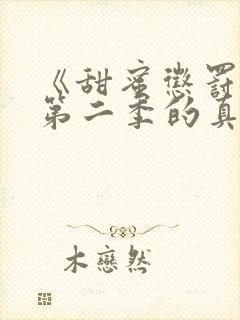 《甜蜜懲罚
第二季的真
木戀然